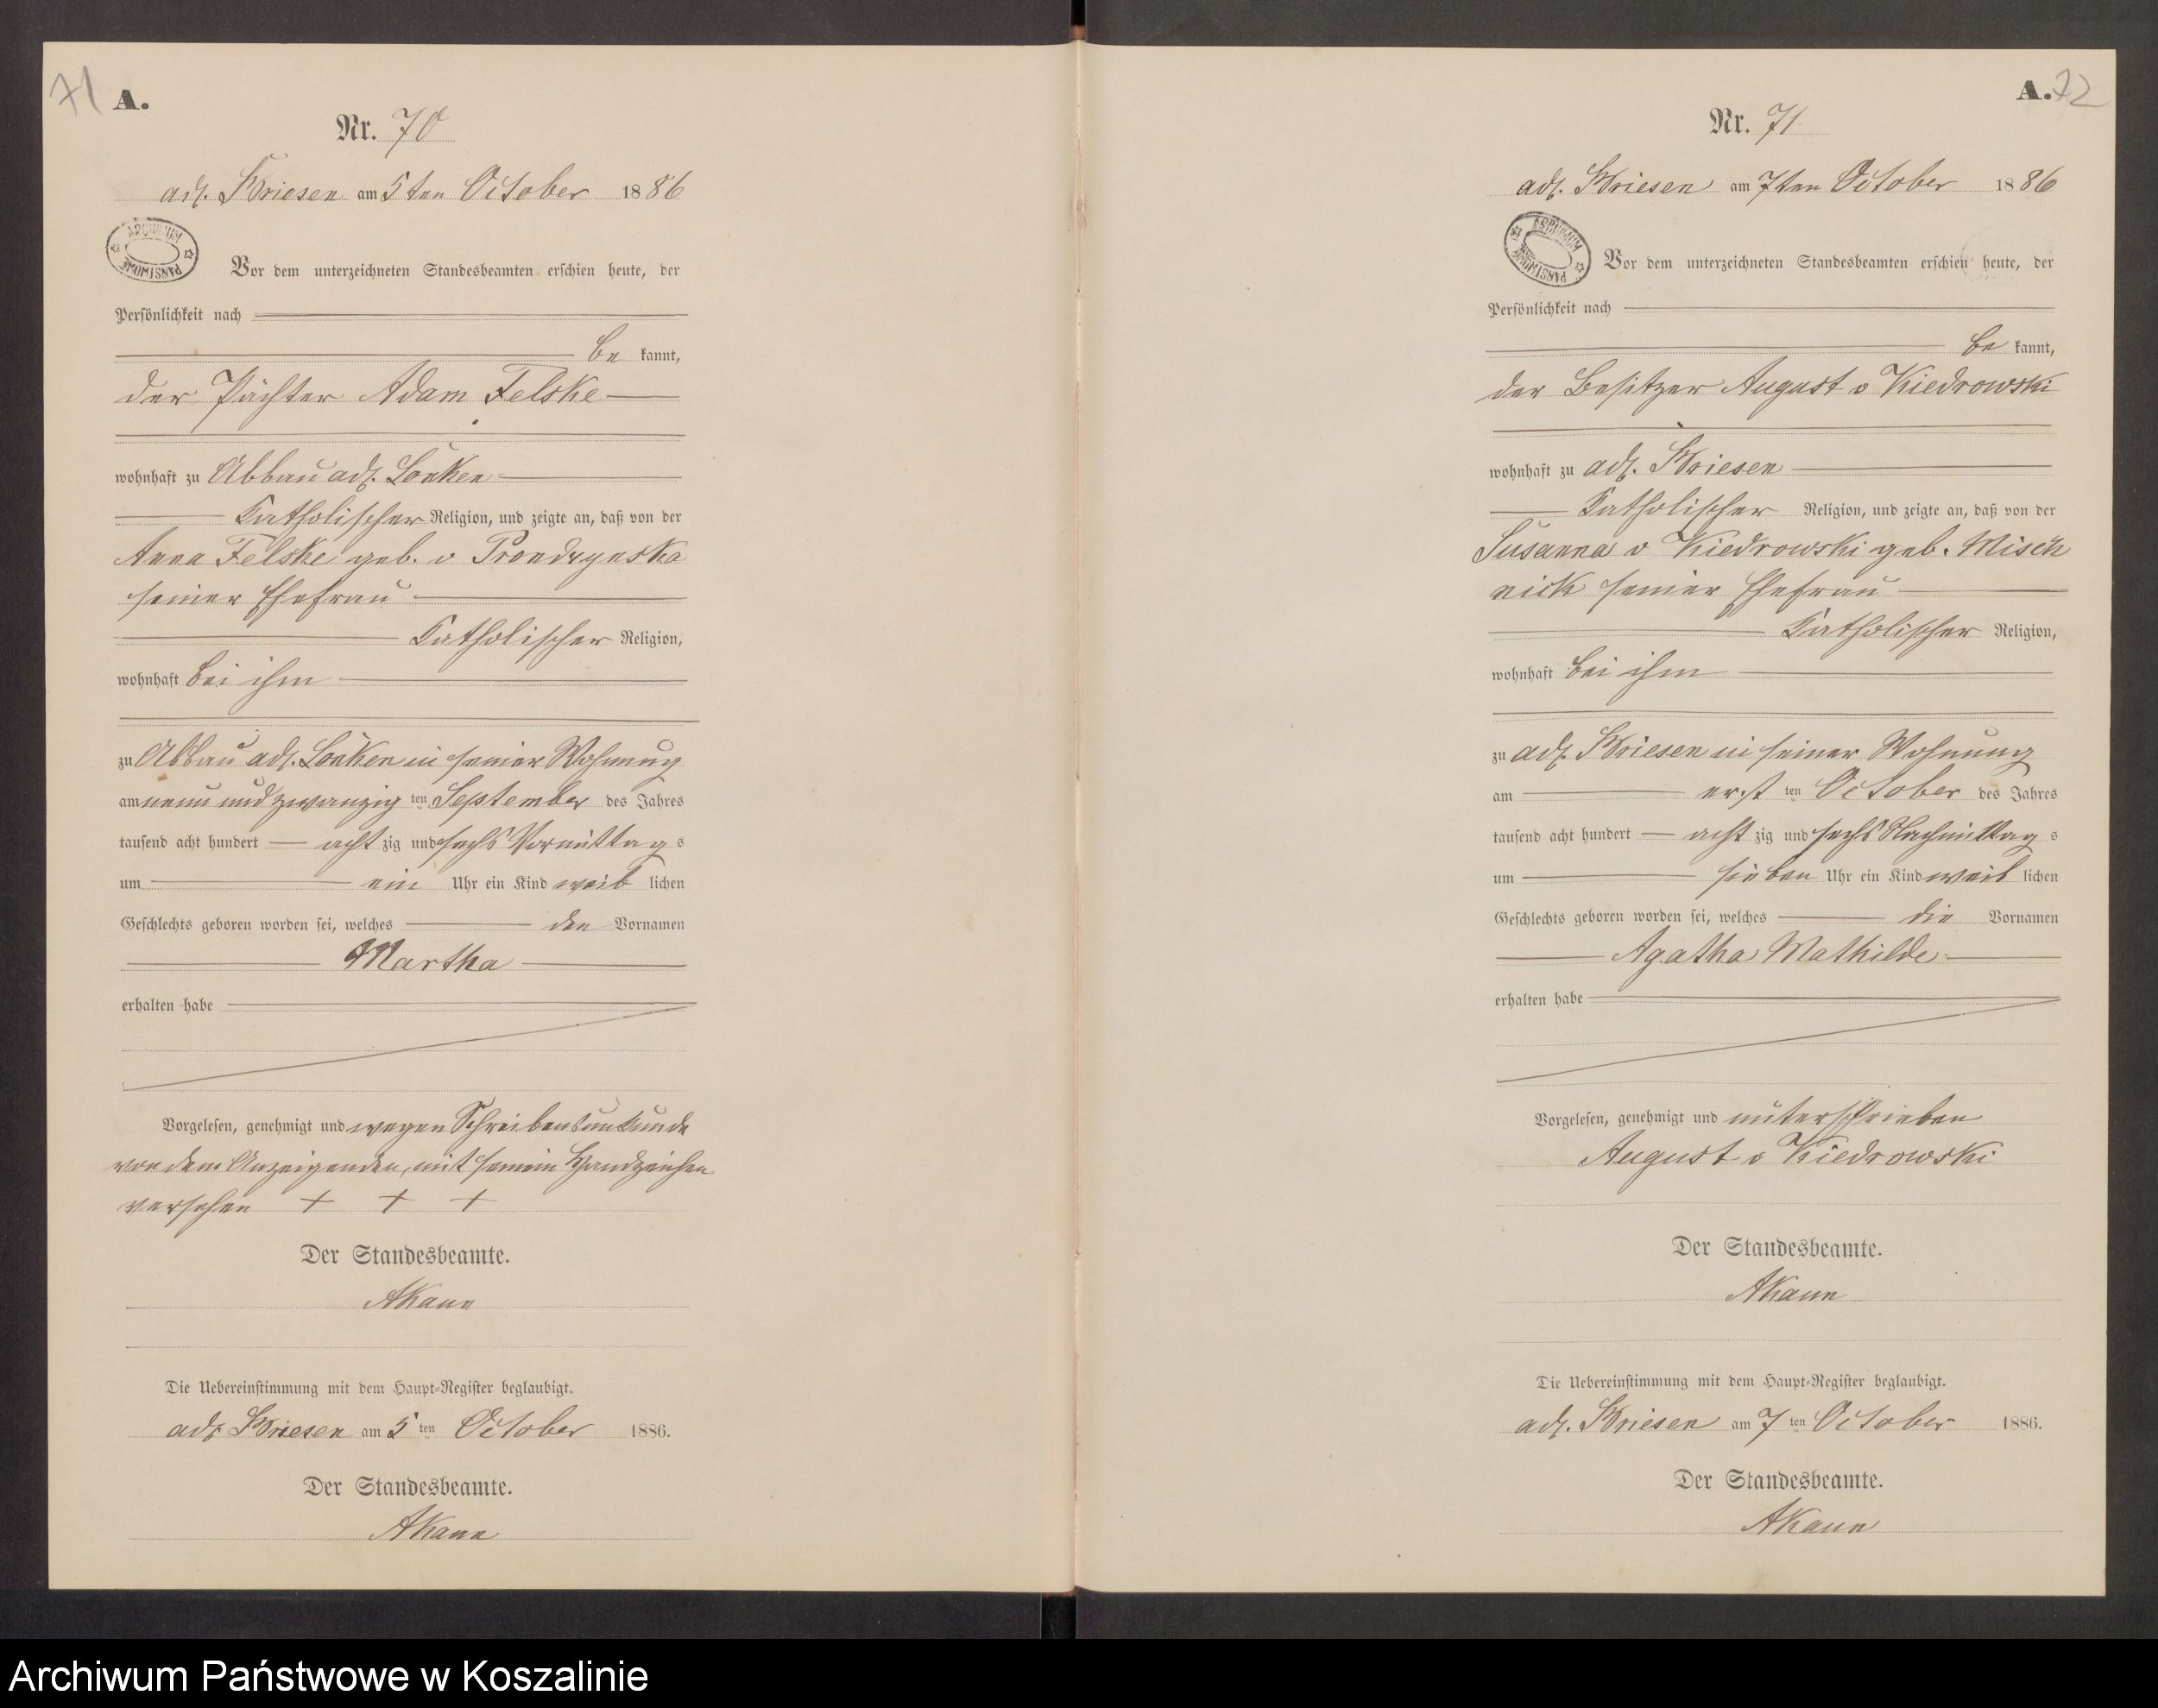 71
A.
Nr. 70
adl. Briesen am 5ten October 1886
ARCHIWUM PAŃSTWOWE
Vor dem unterzeichneten Standesbeamten erschien heute, der
Persönlichkeit nach
be kannt,
der Pächter Adam Felske
wohnhaft zu Abbau adl. Lonken
katholischer Religion, und zeigte an, daß von der
Anna Felske geb. v Prondzynska
seiner Ehefrau
katholischer Religion,
wohnhaft bei ihm
zu Abbau adl. Lonken in seiner Wohnung
am neun und zwanzig ten September des Jahres
tausend acht hundert acht zig und sechs Vormittag s
um ein Uhr ein Kind weib lichen
Geschlechts geboren worden sei, welches den Vornamen
Martha
erhalten habe
Vorgelesen, genehmigt und wegen Schreibensunkunde
von dem Anzeigenden, mit seinem Handzeichen
versehen + + +
Der Standesbeamte.
AKann
Die Uebereinstimmung mit dem Haupt-Register beglaubigt.
adl. Briesen am 5 ten October 1886.
Der Standesbeamte.
AKann
A. 72
Nr. 71
adl. Briesen am 7ten October 1886
ARCHIWUM PAŃSTWOWE
Vor dem unterzeichneten Standesbeamten erschien heute, der
Persönlichkeit nach
be kannt,
der Besitzer August v Kiedrowski
wohnhaft zu adl. Briesen
katholischer Religion, und zeigte an, daß von der
Susanna v Kiedrowski geb. Misch
nick seiner Ehefrau
katholischer Religion,
wohnhaft bei ihm
zu adl. Briesen in seiner Wohnung
am erst ten October des Jahres
tausend acht hundert acht zig und sechs Nachmittag s
um sieben Uhr ein Kind weib lichen
Geschlechts geboren worden sei, welches die Vornamen
Agatha Mathilde
erhalten habe
Vorgelesen, genehmigt und unterschrieben
August v Kiedrowski
Der Standesbeamte.
AKann
Die Uebereinstimmung mit dem Haupt-Register beglaubigt.
adl. Briesen am 7 ten October 1886.
Der Standesbeamte.
AKann
Archiwum Państwowe w Koszalinie